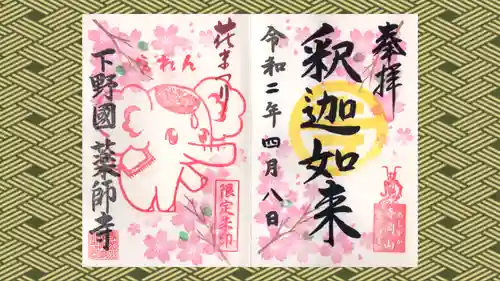 奉拝
釈迦如来
令和二年四月八日
花まつり
かれん
限定朱印
下野國 薬師寺